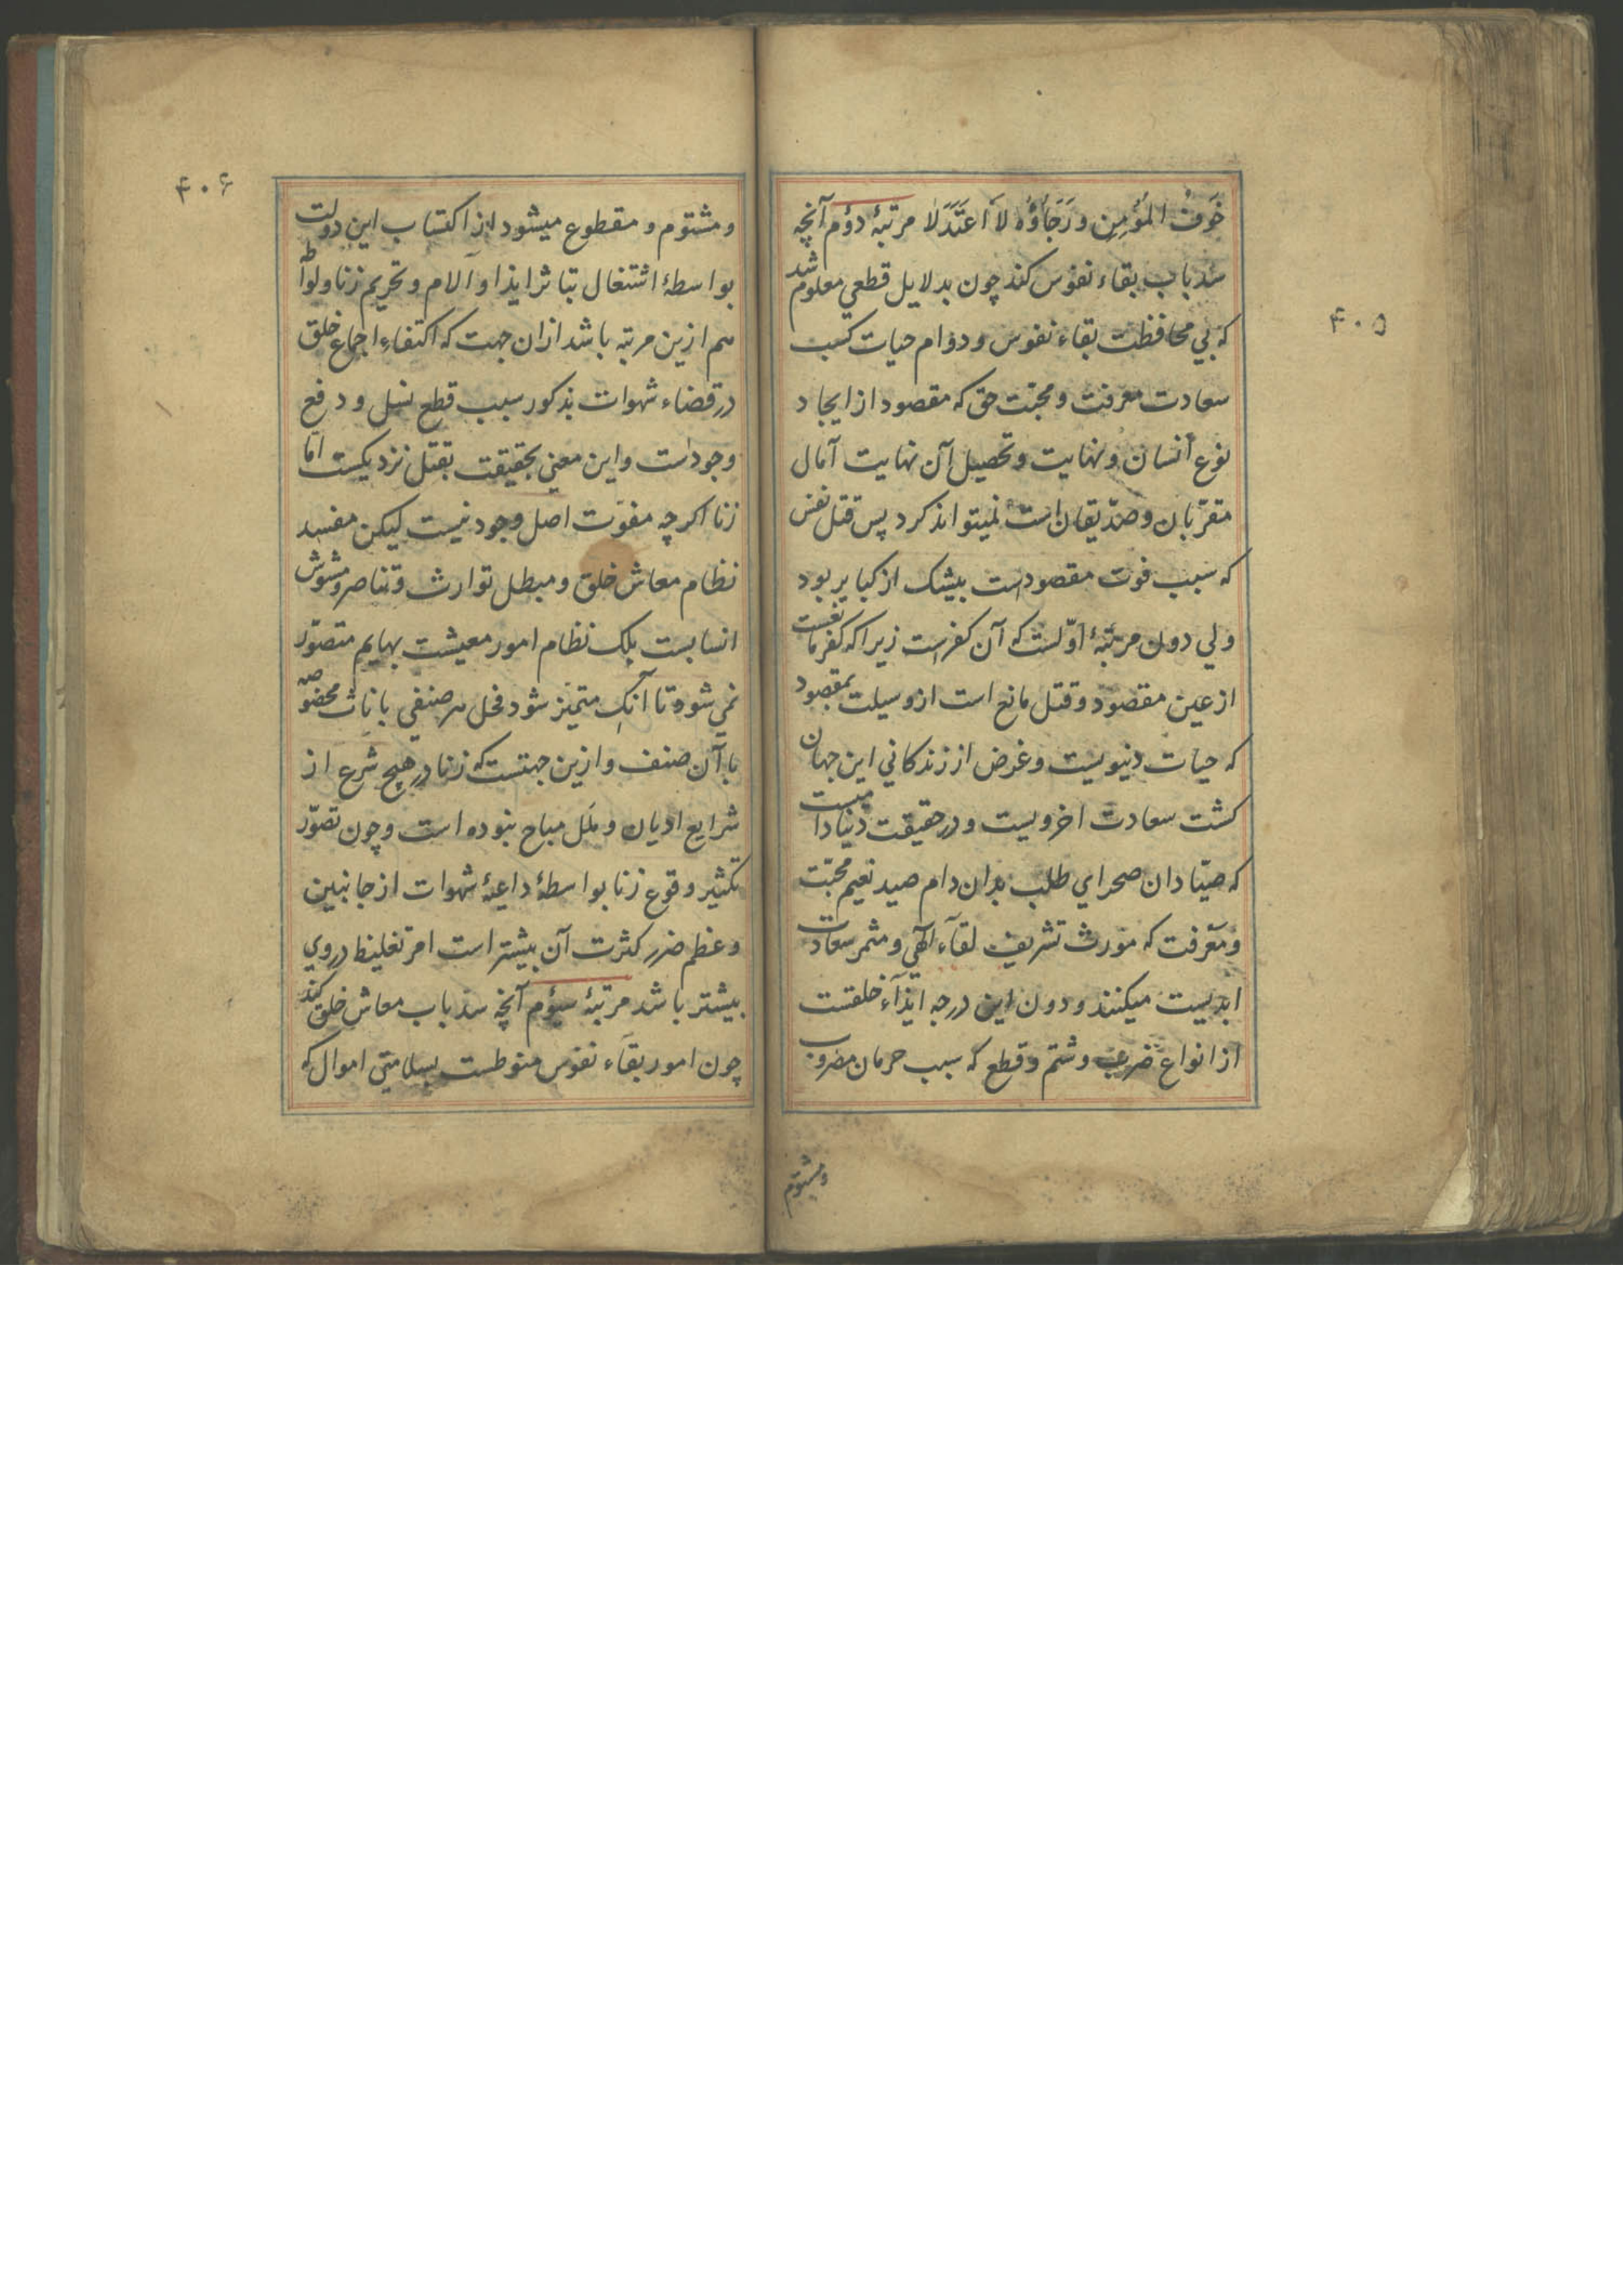 ۴۰۵
خَوفُ المُؤمِنِ ورَجَاؤُه لاَ اعتَدَلا مرتبۀ دوّم آنچه
سد باب بقاء نفوس کند چون بدلایل قطعي معلوم شد
که بي محافظت بقاء نفوس و دوام حیات کسب
سعادت معرفت و محبّت حق که مقصود از ایجاد
نوع انسان و نهایت و تحصیل آن نهایت آمال
مقرّبان و صدّیقان است نمیتواند کرد پس قتل نفس
که سبب فوت مقصودست بیشک از کبایر بود
ولي دون مرتبۀ اوّلست که آن کفرست زیرا که کفر مانعست
از عین مقصود و قتل مانع است از وسیلت بمقصود
که حیات دنیویست و غرض از زندکاني این جهان
کشت سعادت اخرویست و درحقیقت دنیا دامیست
که صیّادان صحراي طلب بدان دام صید نعیم محبّت
و معرفت که مورث تشریف لقآء الٓهي و مثمر سعادت
ابدیست میکنند و دون این درجه ایذآء خلقست
از انواع ضرب و شتم و قطع که سبب حرمان مضروب
ومشتوم
۴۰۶
و مشتوم و مقطوع میشود از اکتساب این دولت
بواسطۀ اشتغال بتاثر ایذا و آلام و تحریم زنا و لواطه
هم ازین مرتبه باشد ازان جهت که اکتفاء اجماع خلق
در قضاء شهوات بذکور سبب قطع نسل و دفع
وجودست و این معني بحقیقت بقتل نزدیکست امّا
زنا اکرچه مفوّت اصل وجود نیست لیکن مفسد
نظام معاش خلق و مبطل توارث و تناصر و مشوش
انسابست بلک نظام امور معیشت بهایم متصوّر
نمي شود تا آنک متمیّز شود فحل هر صنفي باناث مخصوصه
با آن صنف و ازین جهتست که زنا در هیچ شرع از
شرایع ادیان و ملل مباح نبوده است و چون تصوّر
تکثیر وقوع زنا بواسطۀ داعیۀ شهوات از جانبین
و عظم ضرر کثرت آن بیشتر است امر تغلیظ در وي
بیشتر باشد مرتبۀ سیؤم آنچه سد باب معاش خلق کند
چون امور بقآء نفوس منوطست بسلامتي اموال که